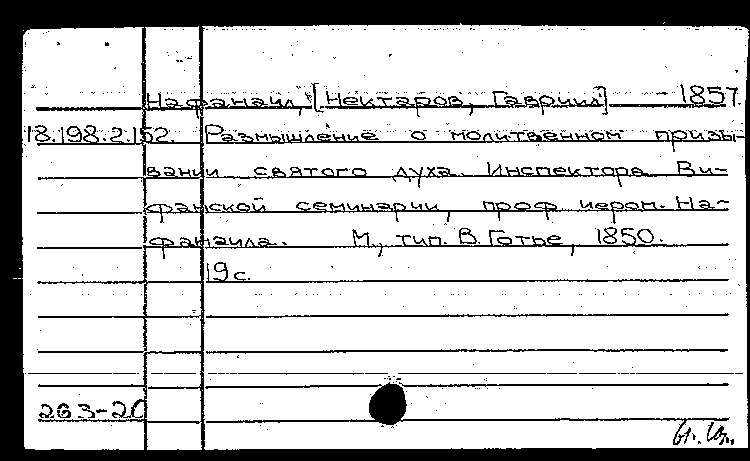 Нафанаил, [Нектаров, Гавриил] - 1857.
18.198.2.152. Размышление о молитвенном призы-
вании святого духа. Инспектора Ви-
фанской семинарии, проф. иером. На-
фанаила. М., тип. В. Готье, 1850.
19 с.
263-20